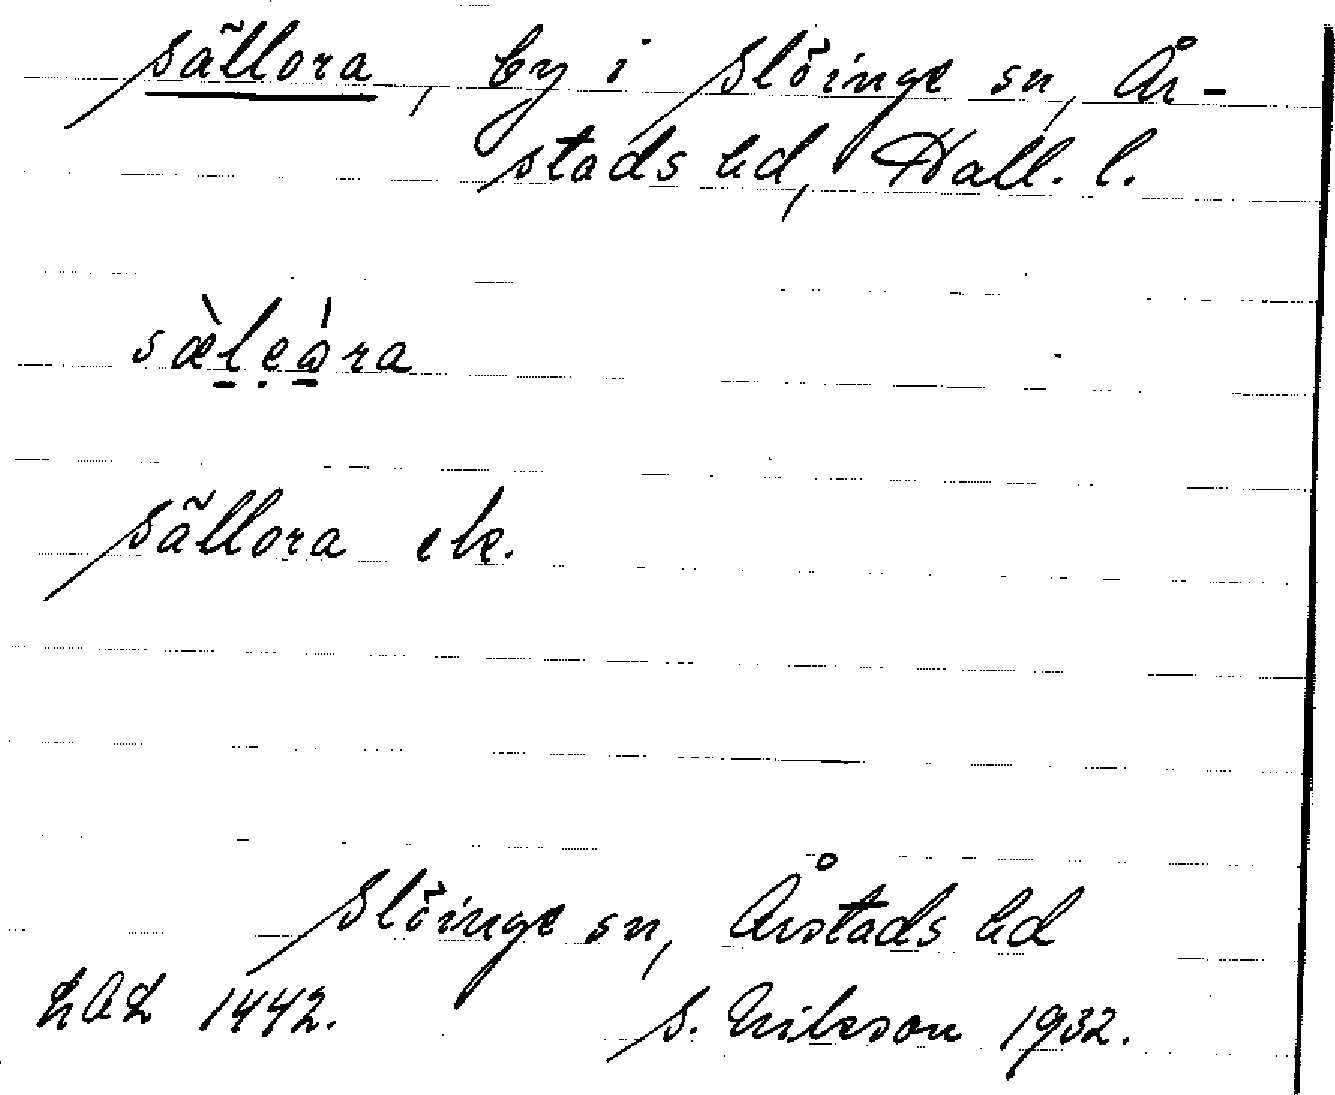 Sällora, by i Slöinge sn, År-
stads hd, Hall. l.
sæ̀lẹɷ̀ra
Sällora ek.
Slöinge sn, Årstads hd
LAL 1442. S. Erikson 1932.